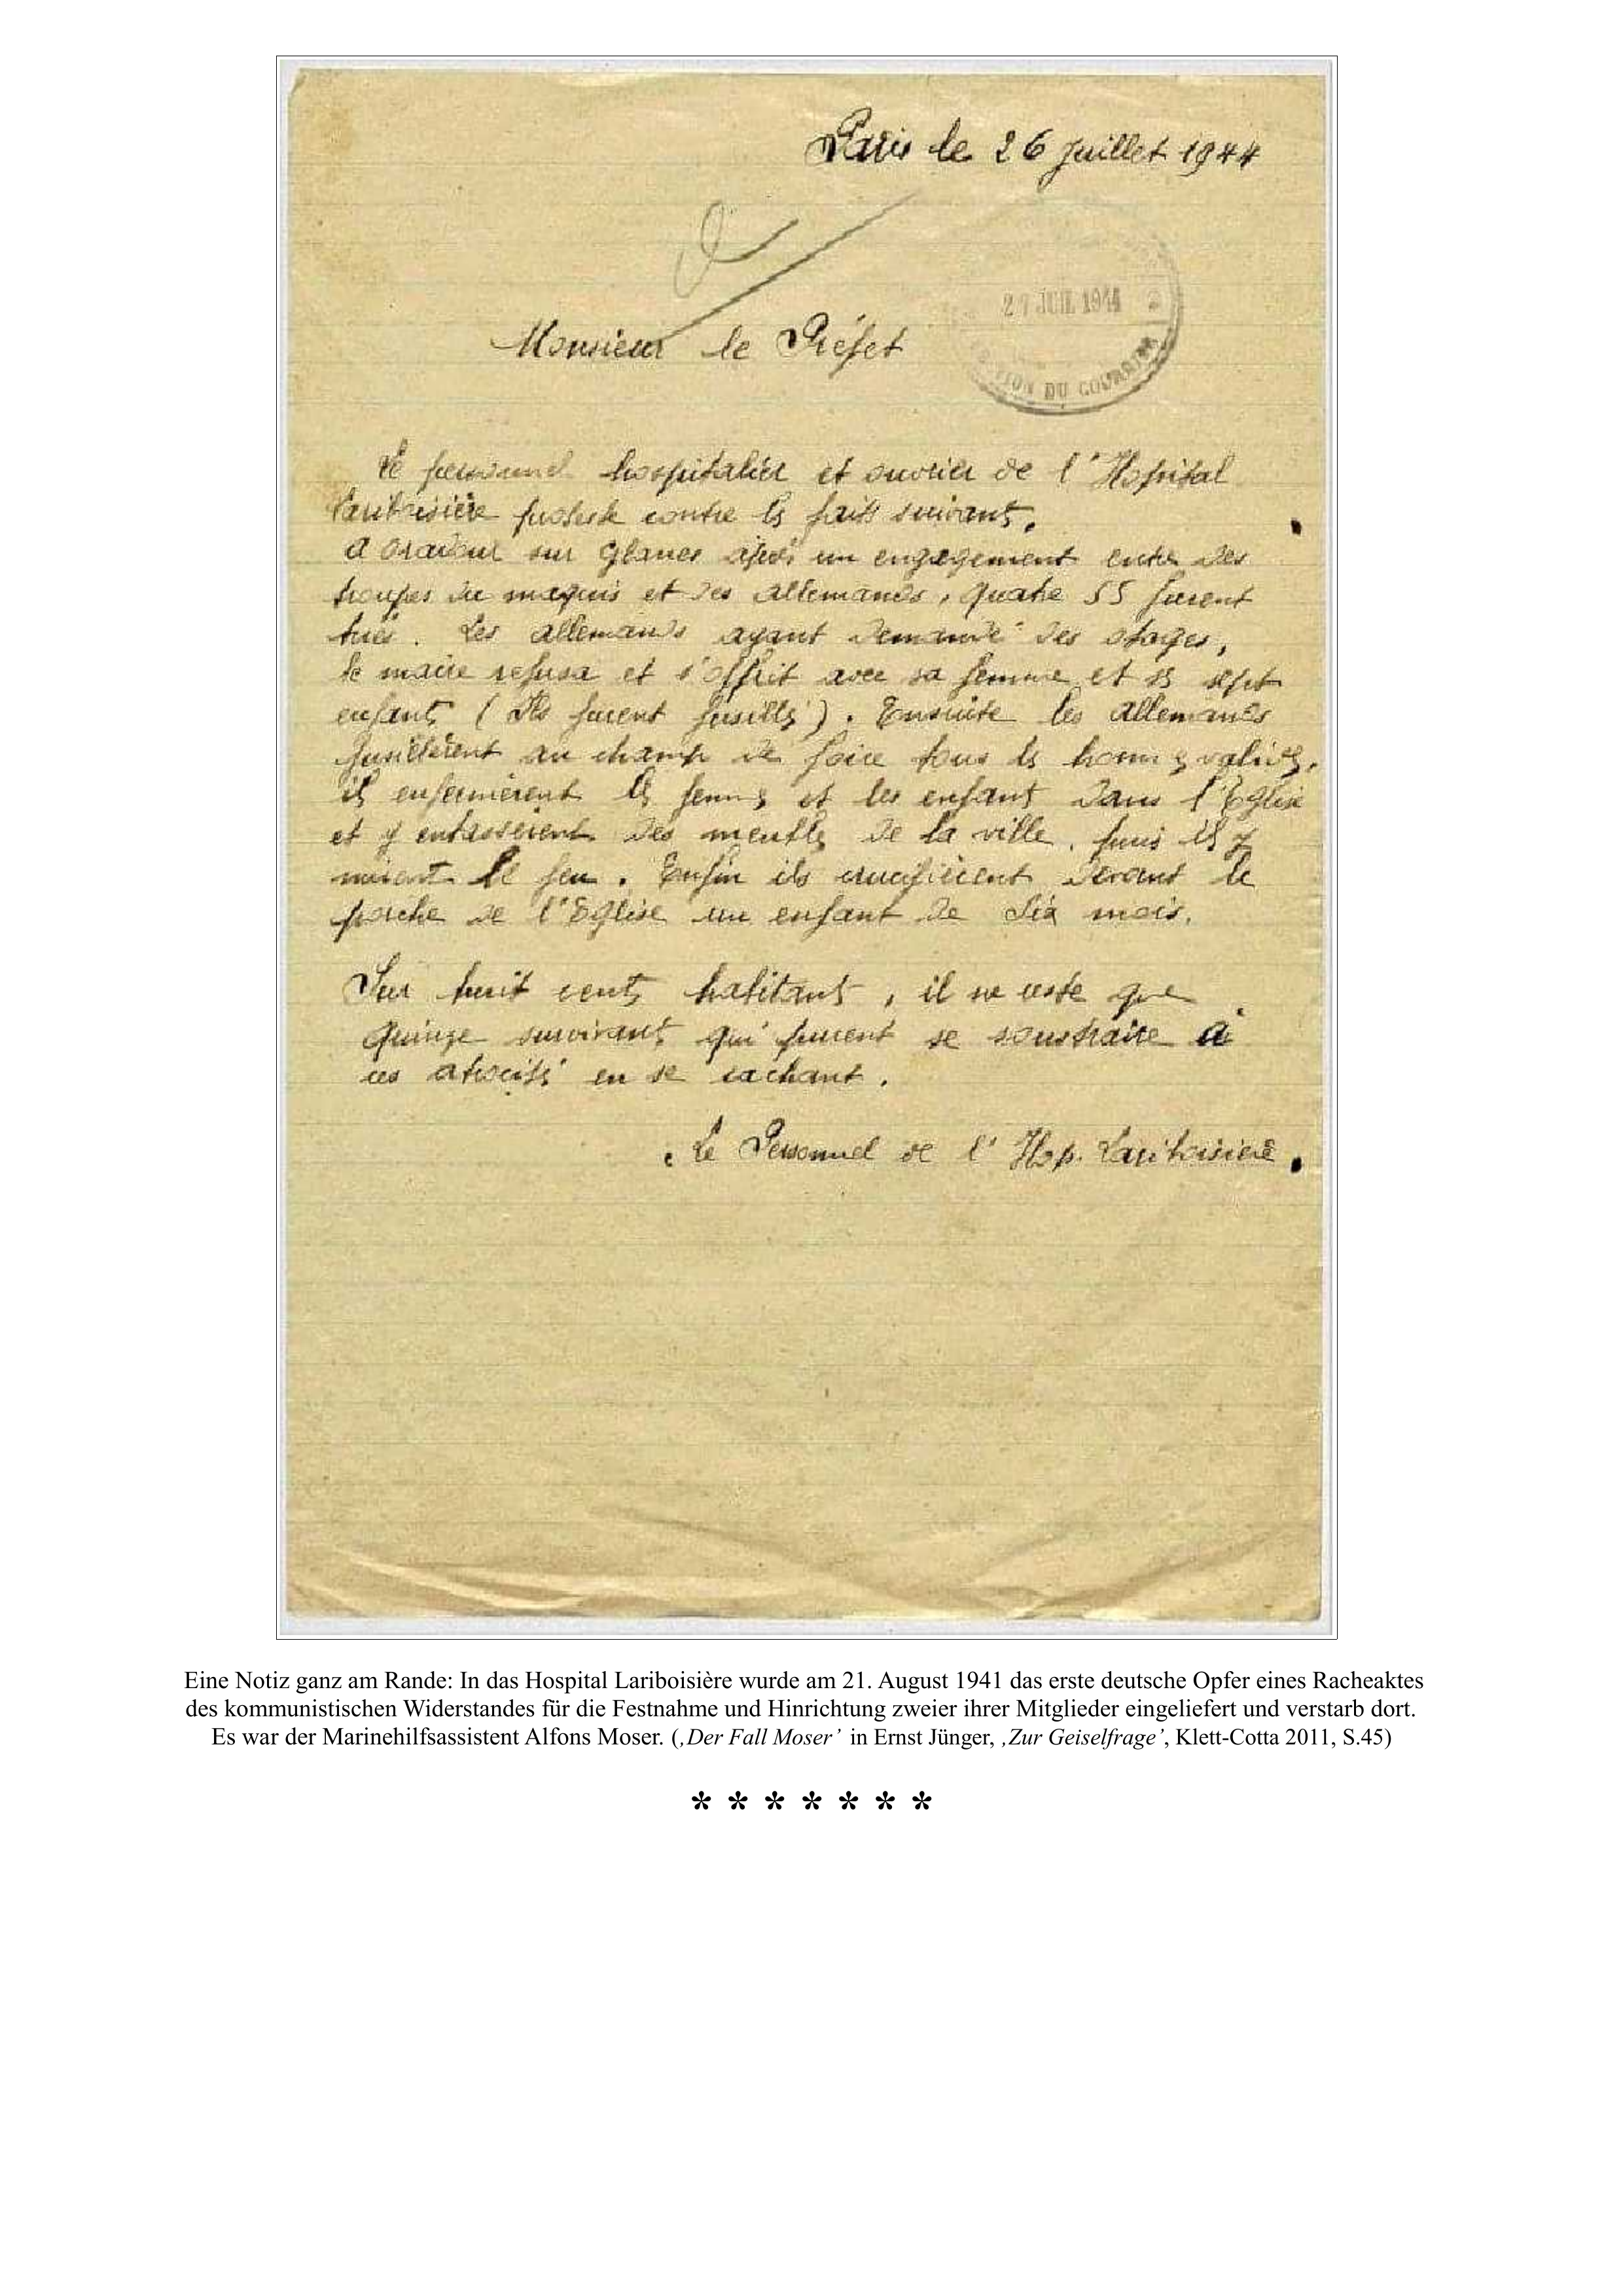 Paris le 26 juillet 1944
27 JUIL 1944 2
ION DU COURRIER
Monsieur le Préfet
Le personnel hospitalier et ouvrier de l'Hopital
Lariboisière proteste contre les faits suivants.
A Oradour sur Glanes après un engagement entre des
troupes du maquis et des allemands, quatre SS furent
tués. Les allemands ayant demandé des otages,
le maire refusa et s'offrit avec sa femme et ses sept
enfants (Ils furent fusillés). Ensuite les allemands
fusillèrent au champ de foire tous les hommes valides,
ils enfermèrent les femmes et les enfants dans l'Eglise
et y entassèrent des meubles de la ville, puis ils y
mirent le feu. Enfin ils crucifièrent devant le
porche de l'Eglise un enfant de six mois.
Sur huit cents habitants, il ne reste que
quinze survivants qui purent se soustraire à
ces atrocités en se cachant.
Le Personnel de l'Hop. Lariboisière.
Eine Notiz ganz am Rande: In das Hospital Lariboisière wurde am 21. August 1941 das erste deutsche Opfer eines Racheaktes
des kommunistischen Widerstandes für die Festnahme und Hinrichtung zweier ihrer Mitglieder eingeliefert und verstarb dort.
Es war der Marinehilfsassistent Alfons Moser. (‚Der Fall Moser’ in Ernst Jünger, ‚Zur Geiselfrage’, Klett-Cotta 2011, S.45)
* * * * * * *